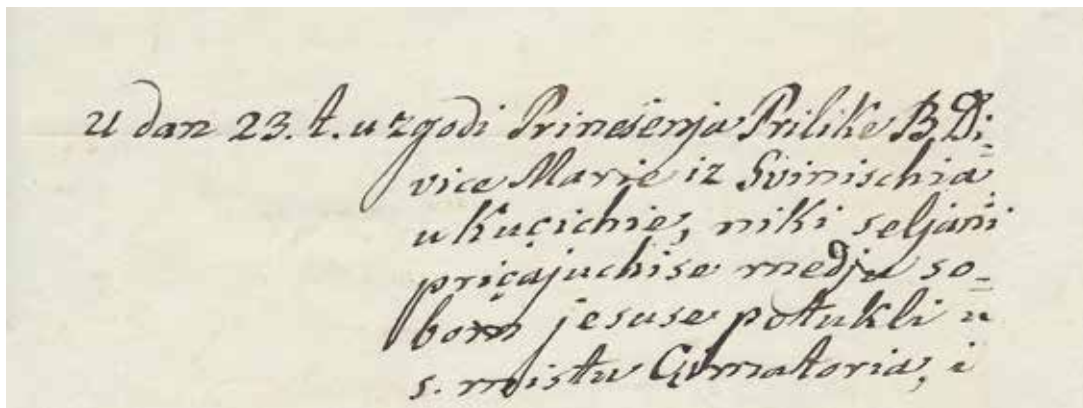 U dan 23. t. u zgodi Prinesenja Prilike B. Di-
vice Marie iz Svinischia
u Kuçichie, niki seljani
priçajuchise medju so-
bom jesuse potukli u
s. mistu Çimatoria, i